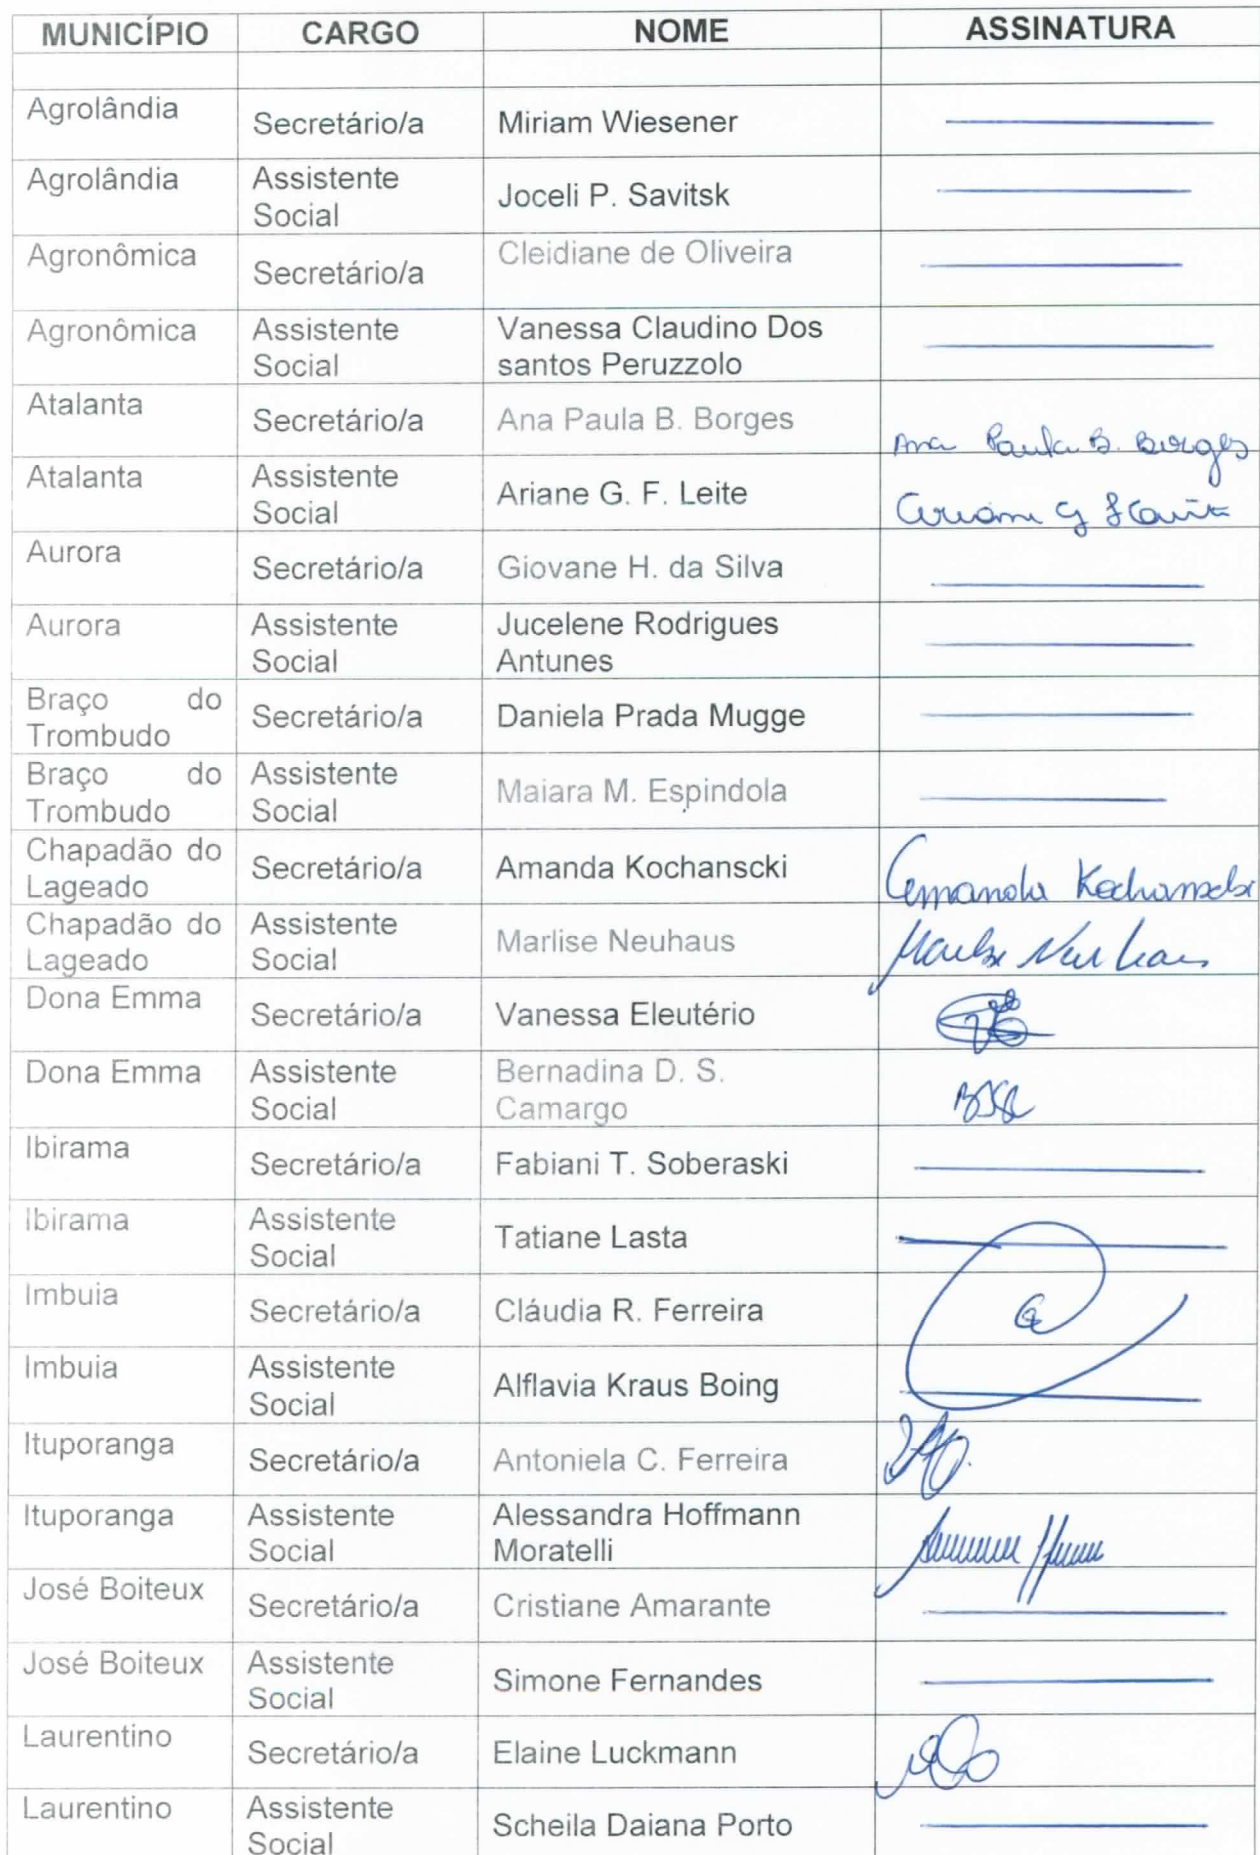 MUNICÍPIO CARGO NOME ASSINATURA
Agrolândia Secretário/a Miriam Wiesener
Agrolândia Assistente Social Joceli P. Savitsk
Agronômica Secretário/a Cleidiane de Oliveira
Agronômica Assistente Social Vanessa Claudino Dos santos Peruzzolo
Atalanta Secretário/a Ana Paula B. Borges Ana Paula B. Borges
Atalanta Assistente Social Ariane G. F. Leite
Aurora Secretário/a Giovane H. da Silva
Aurora Assistente Social Jucelene Rodrigues Antunes
Braço do Trombudo Secretário/a Daniela Prada Mugge
Braço do Trombudo Assistente Social Maiara M. Espindola
Chapadão do Lageado Secretário/a Amanda Kochanscki Amanda Kochanscki
Chapadão do Lageado Assistente Social Marlise Neuhaus Marlise Neuhaus
Dona Emma Secretário/a Vanessa Eleutério
Dona Emma Assistente Social Bernadina D. S. Camargo
Ibirama Secretário/a Fabiani T. Soberaski
Ibirama Assistente Social Tatiane Lasta
Imbuia Secretário/a Cláudia R. Ferreira
Imbuia Assistente Social Alflavia Kraus Boing
Ituporanga Secretário/a Antoniela C. Ferreira
Ituporanga Assistente Social Alessandra Hoffmann Moratelli
José Boiteux Secretário/a Cristiane Amarante
José Boiteux Assistente Social Simone Fernandes
Laurentino Secretário/a Elaine Luckmann
Laurentino Assistente Social Scheila Daiana Porto